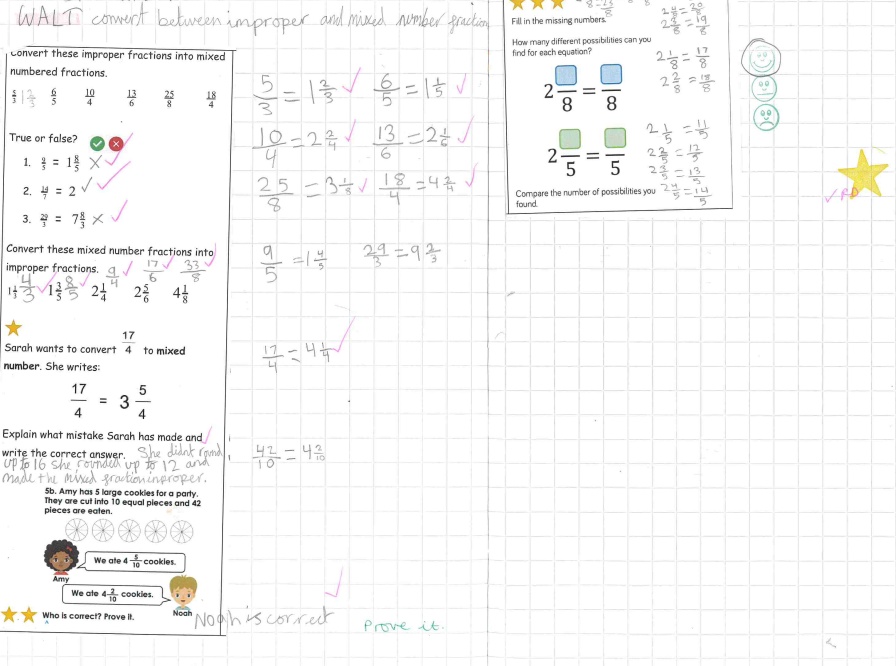 WALT convert between improper and mixed number fraction
Convert these improper fractions into mixed
numbered fractions.
5/3 1 2/3 6/5 10/4 13/6 25/8 18/4
True or false?
1. 9/5 = 1 8/5 X
2. 14/7 = 2 ✓
3. 29/3 = 7 8/3 X
Convert these mixed number fractions into
improper fractions.
1 1/3 4/3 1 3/5 8/5 2 1/4 9/4 2 5/6 17/6 4 1/8 33/8
Sarah wants to convert 17/4 to mixed
number. She writes:
17/4 = 3 5/4
Explain what mistake Sarah has made and
write the correct answer. She didnt round
up to 16 she rounded up to 12 and
made the mixed fraction improper.
5b. Amy has 5 large cookies for a party.
They are cut into 10 equal pieces and 42
pieces are eaten.
We ate 4 5/10 cookies.
Amy
We ate 4 2/10 cookies.
Noah
Who is correct? Prove it.
Noah is correct
Prove it.
5/3 = 1 2/3 6/5 = 1 1/5
10/4 = 2 2/4 13/6 = 2 1/6
25/8 = 3 1/8 18/4 = 4 2/4
9/5 = 1 4/5 29/3 = 9 2/3
17/4 = 4 1/4
42/10 = 4 2/10
Fill in the missing numbers.
How many different possibilities can you
find for each equation?
2 /8 = /8
2 /5 = /5
Compare the number of possibilities you
found.
2 3/8 = 19/8
2 1/8 = 17/8
2 2/8 = 18/8
2 1/5 = 11/5
2 2/5 = 12/5
2 3/5 = 13/5
2 4/5 = 14/5